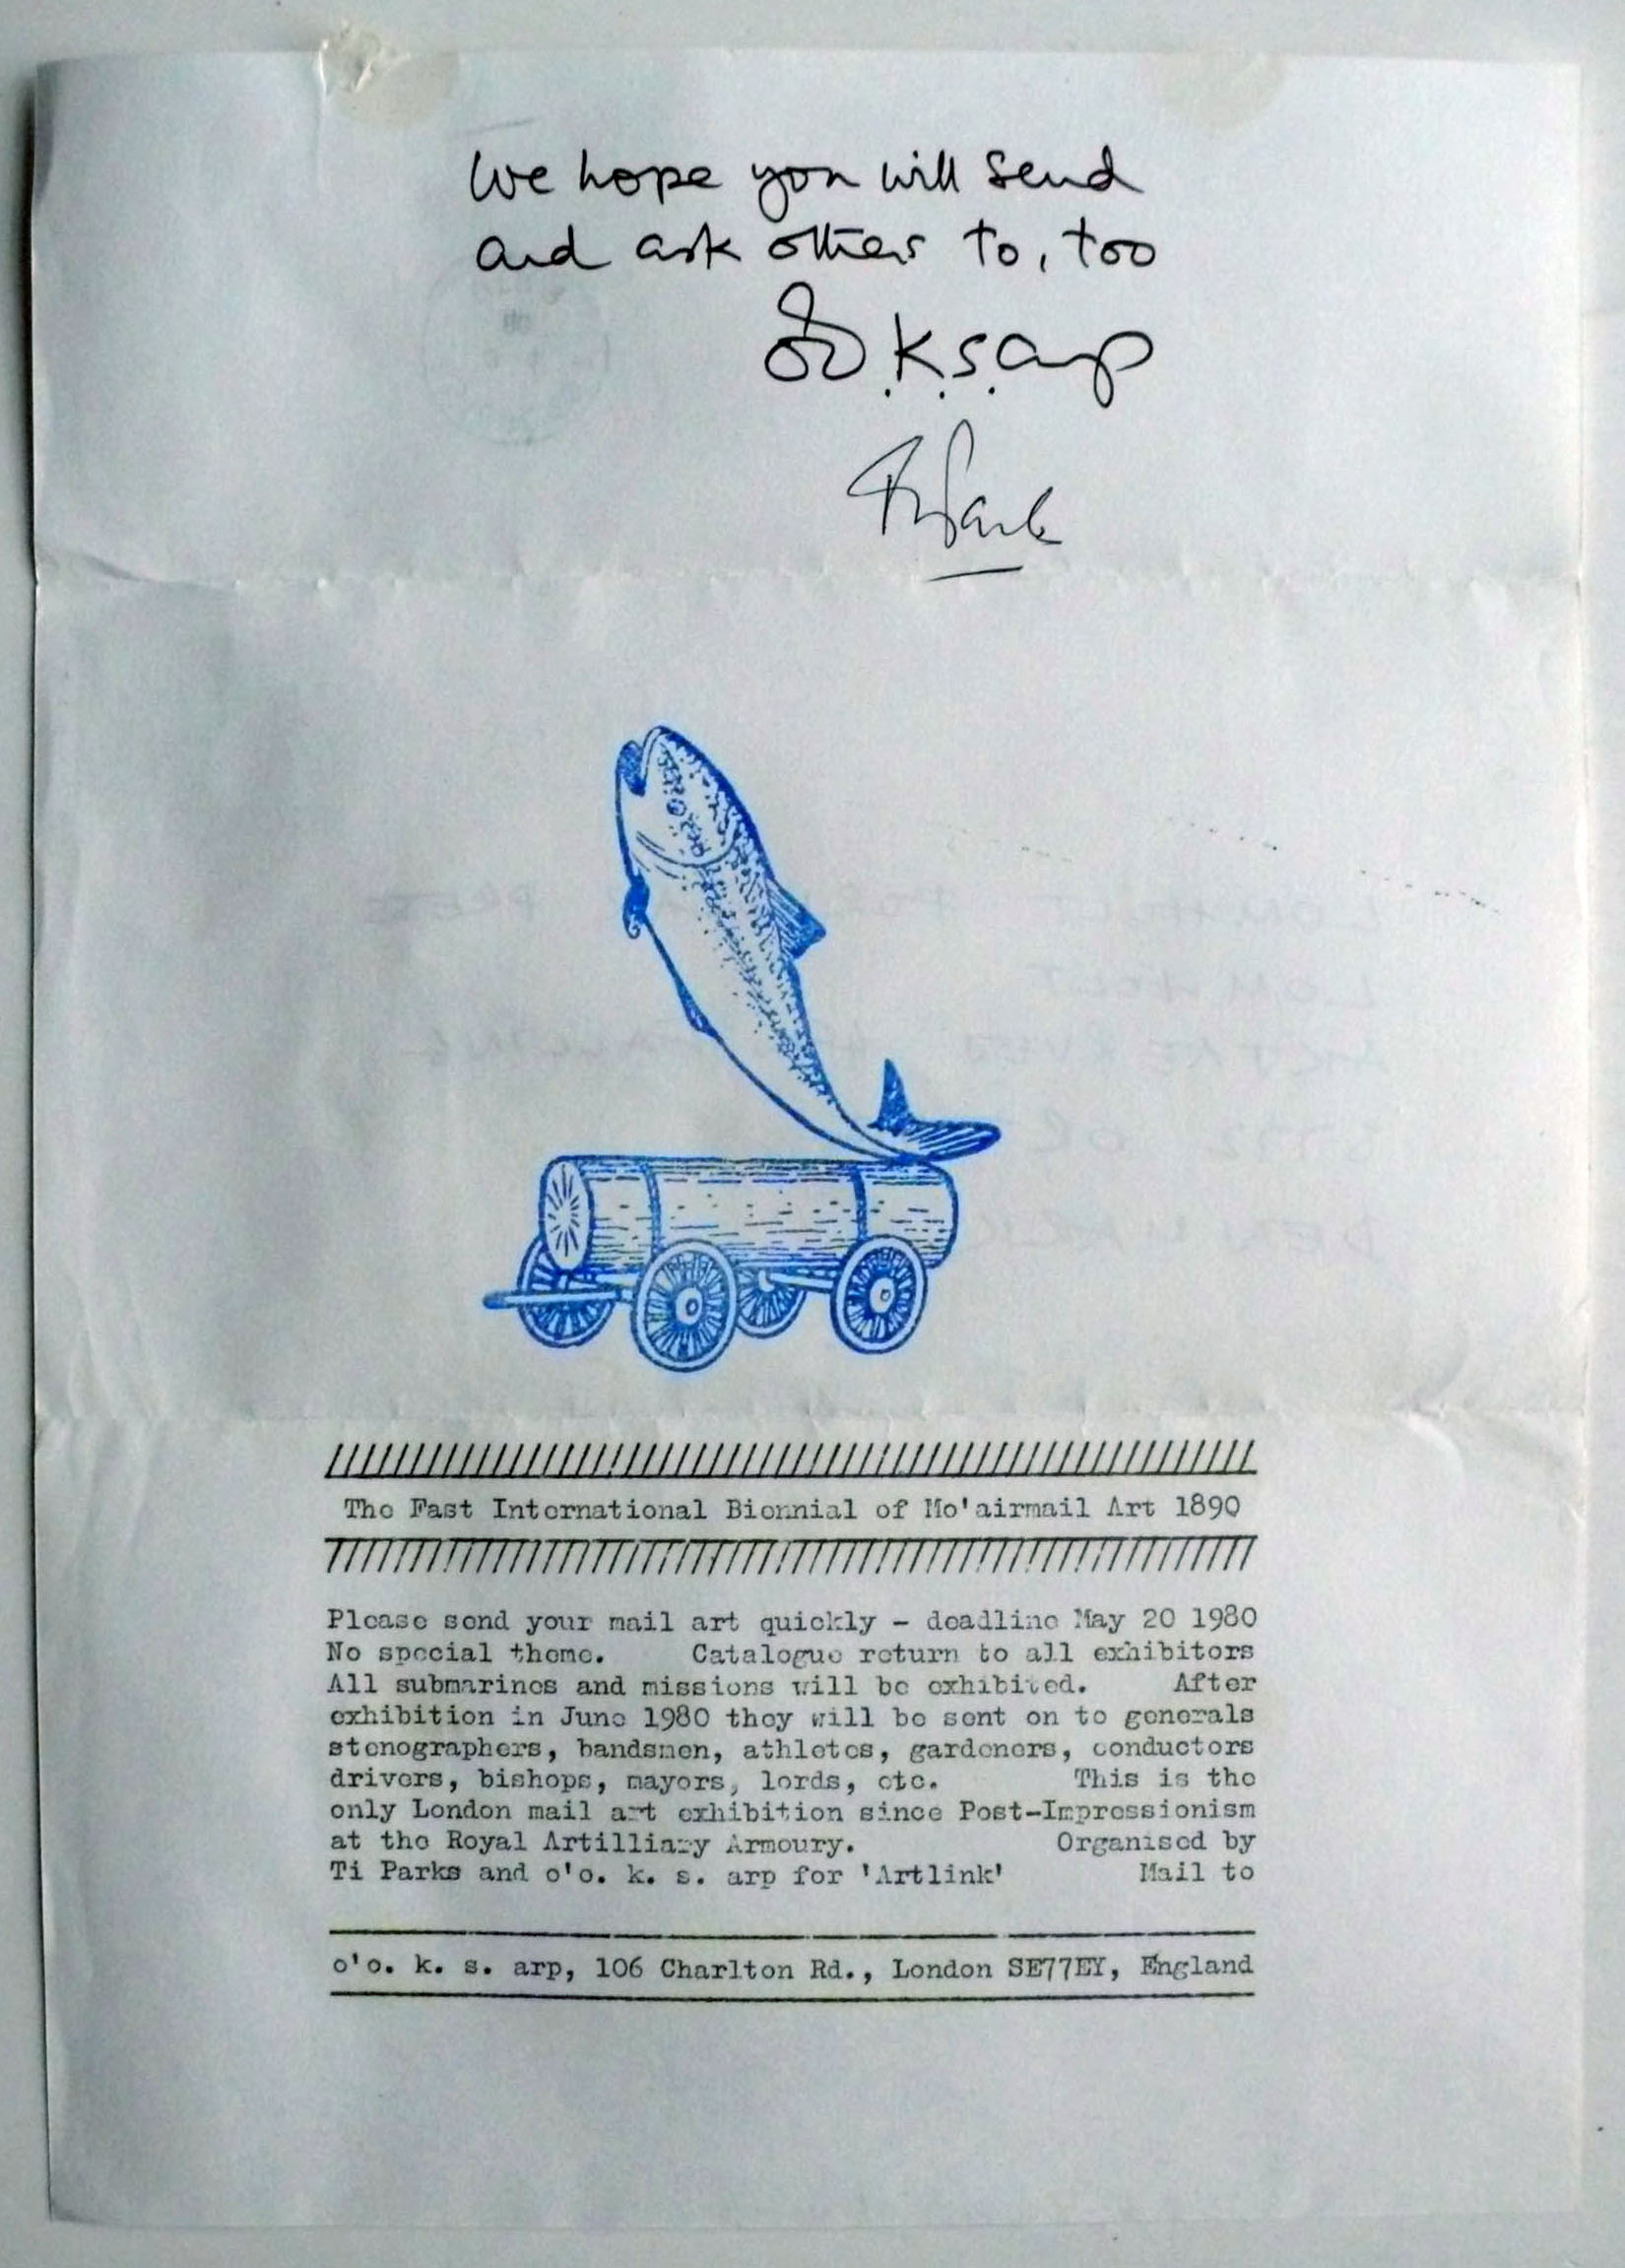 We hope you will send
and ask others to, too
o'o.k.s.arp
The Fast International Biennial of Mo'airmail Art 1890
Please send your mail art quickly – deadline May 20 1980
No special theme. Catalogue return to all exhibitors
All submarines and missions will be exhibited. After
exhibition in June 1980 they will be sent on to generals
stenographers, bandsmen, athletes, gardeners, conductors
drivers, bishops, mayors, lords, etc. This is the
only London mail art exhibition since Post-Impressionism
at the Royal Artilliary Armoury. Organised by
Ti Parks and o'o. k. s. arp for 'Artlink' Mail to
o'o. k. s. arp, 106 Charlton Rd., London SE77EY, England